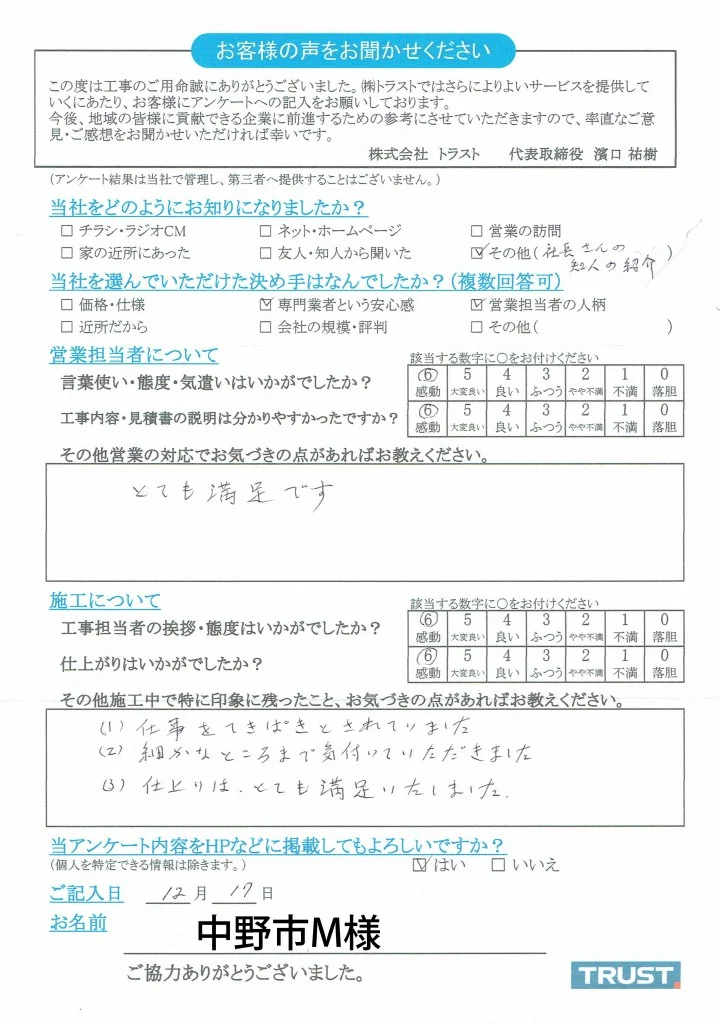 お客様の声をお聞かせください
この度は工事のご用命誠にありがとうございました。㈱トラストではさらによりよいサービスを提供して
いくにあたり、お客様にアンケートへの記入をお願いしております。
今後、地域の皆様に貢献できる企業に前進するための参考にさせていただきますので、率直なご意
見・ご感想をお聞かせいただければ幸いです。
株式会社 トラスト 代表取締役 濱口 祐樹
(アンケート結果は当社で管理し、第三者へ提供することはございません。)
当社をどのようにお知りになりましたか？
□ チラシ・ラジオCM □ ネット・ホームページ □ 営業の訪問
□ 家の近所にあった □ 友人・知人から聞いた ☑ その他(社長さんの
知人の紹介)
当社を選んでいただけた決め手はなんでしたか？(複数回答可)
□ 価格・仕様 ☑ 専門業者という安心感 ☑ 営業担当者の人柄
□ 近所だから □ 会社の規模・評判 □ その他( )
営業担当者について 該当する数字に○をお付けください
言葉使い・態度・気遣いはいかがでしたか？ ⑥ 5 4 3 2 1 0
感動 大変良い 良い ふつう やや不満 不満 落胆
工事内容・見積書の説明は分かりやすかったですか？ ⑥ 5 4 3 2 1 0
感動 大変良い 良い ふつう やや不満 不満 落胆
その他営業の対応でお気づきの点があればお教えください。
とても満足です
施工について 該当する数字に○をお付けください
工事担当者の挨拶・態度はいかがでしたか？ ⑥ 5 4 3 2 1 0
感動 大変良い 良い ふつう やや不満 不満 落胆
仕上がりはいかがでしたか？ ⑥ 5 4 3 2 1 0
感動 大変良い 良い ふつう やや不満 不満 落胆
その他施工中で特に印象に残ったこと、お気づきの点があればお教えください。
(1) 仕事をてきぱきとされていました
(2) 細かなところまで気付いていただきました
(3) 仕上りは、とても満足いたしました.
当アンケート内容をHPなどに掲載してもよろしいですか？
(個人を特定できる情報は除きます。) ☑ はい □ いいえ
ご記入日 12月 17日
お名前 中野市M様
ご協力ありがとうございました。
TRUST.